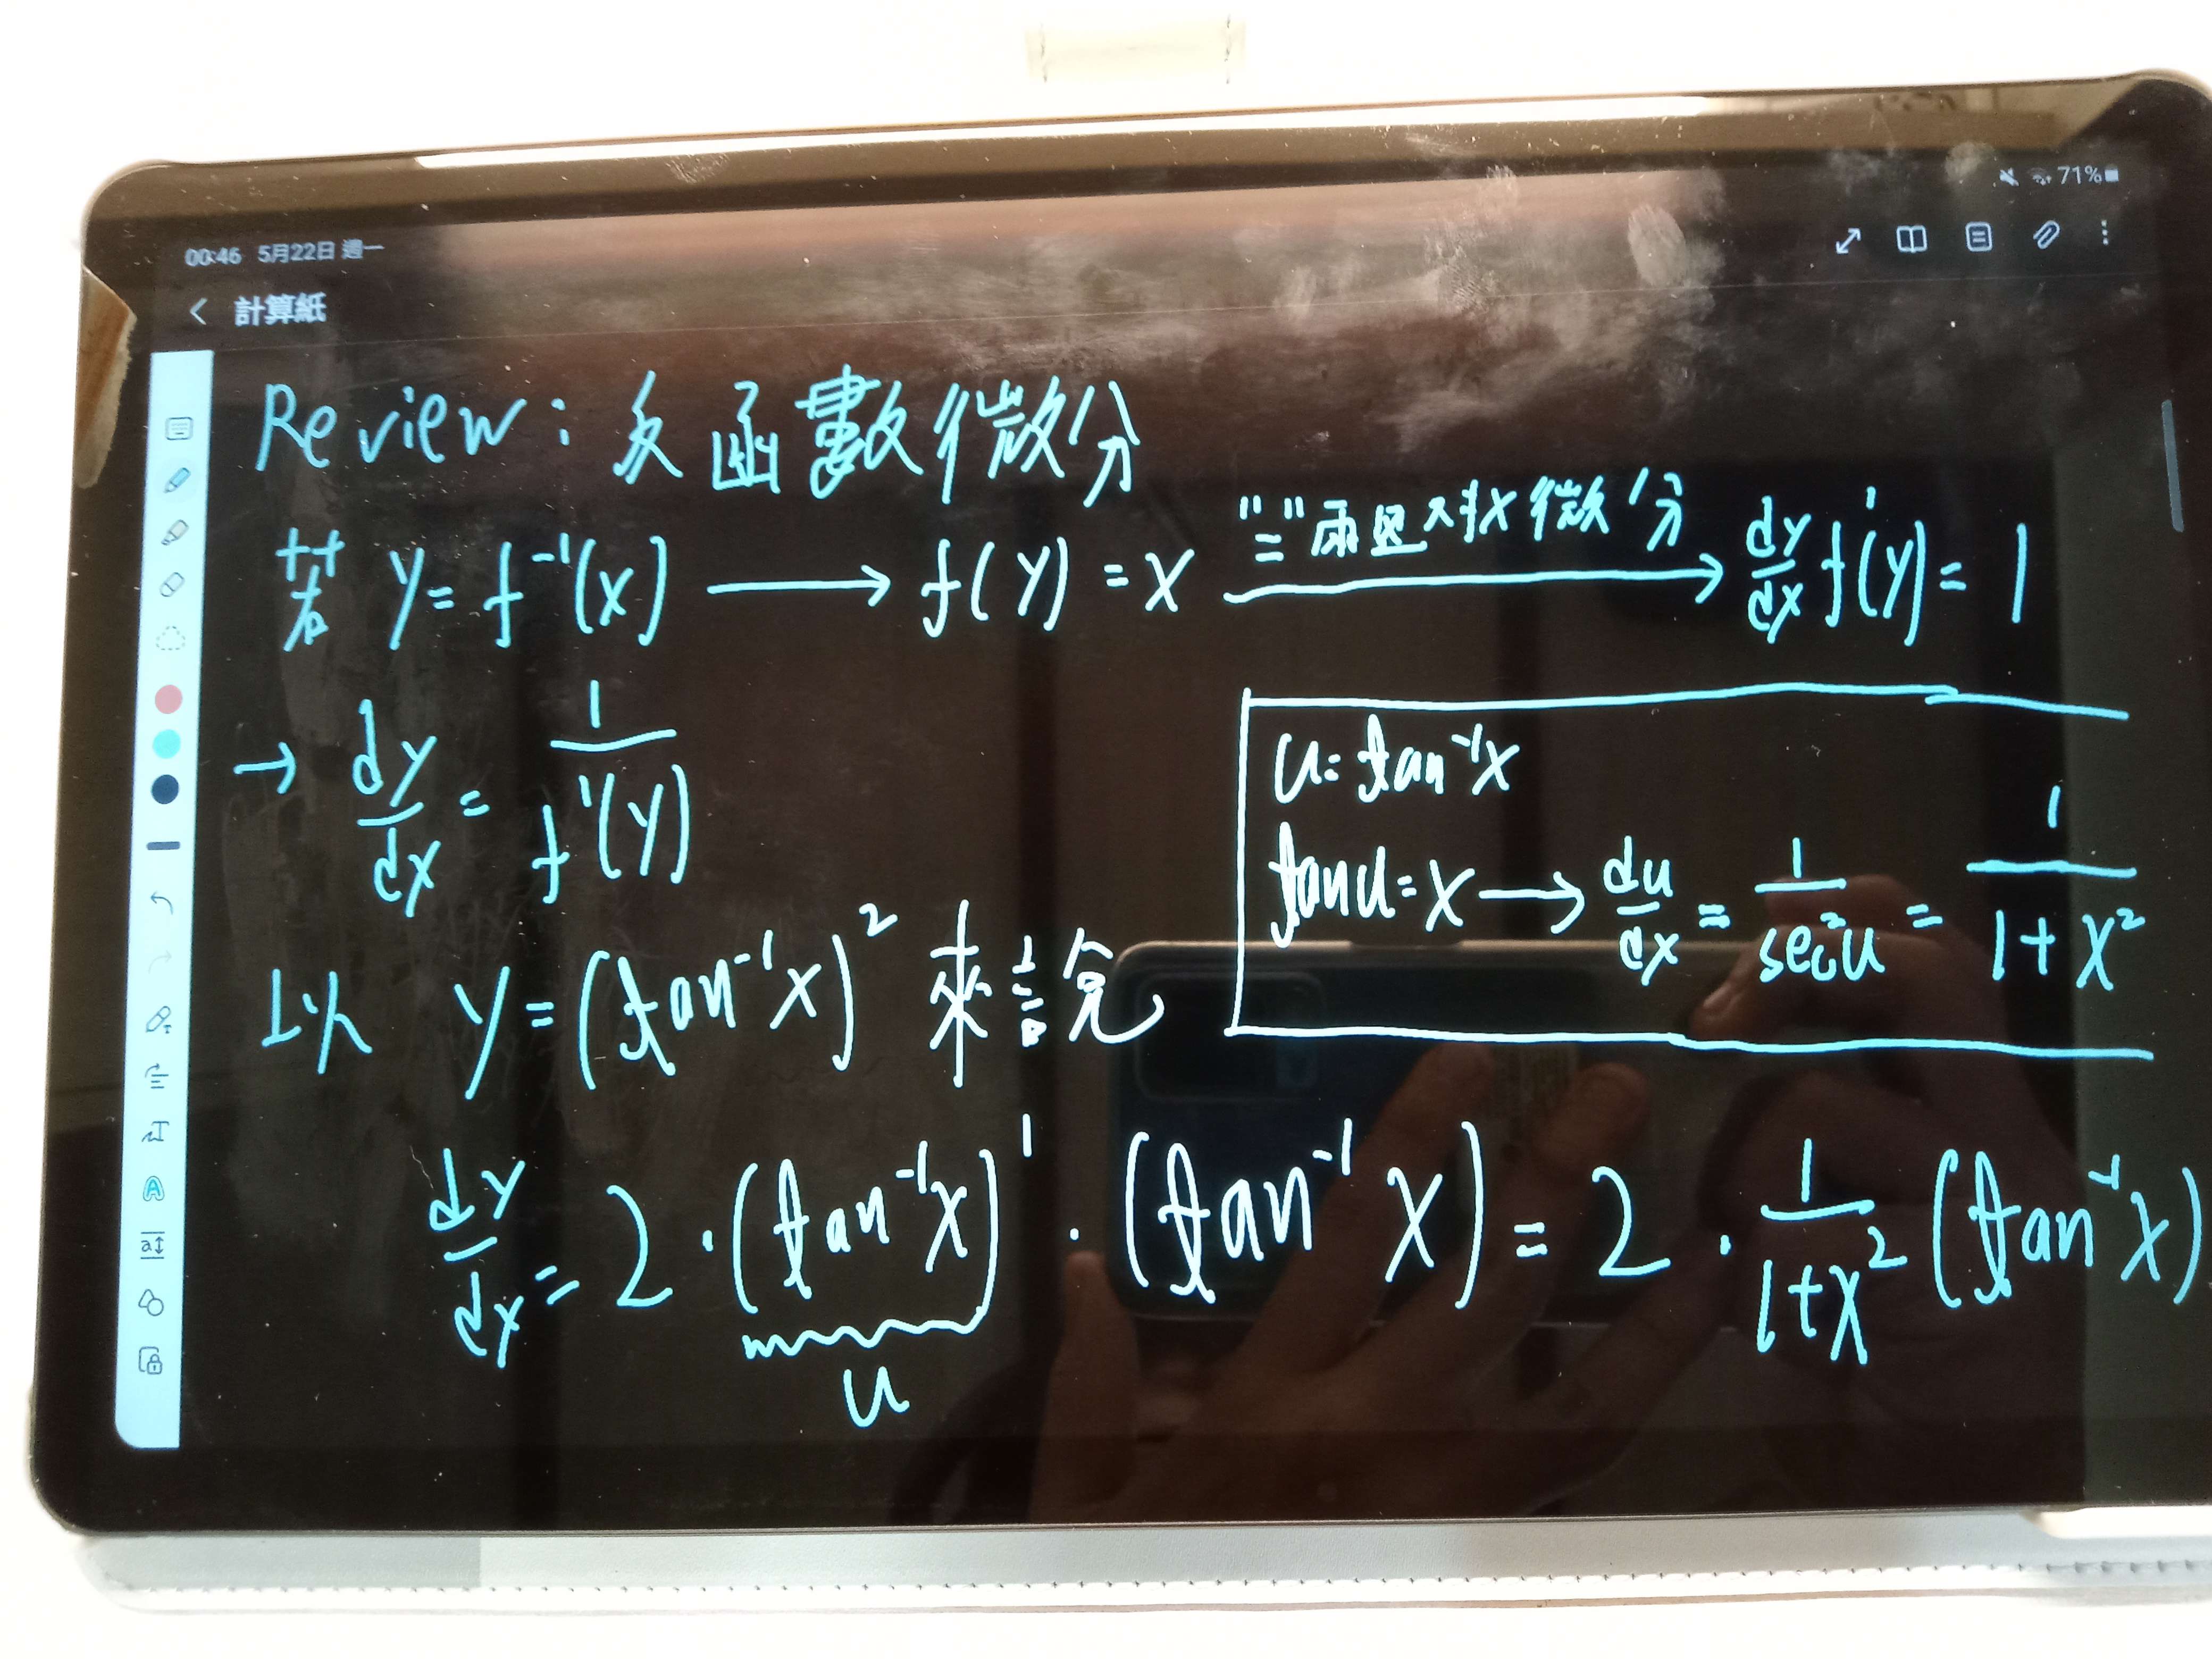 71%
00:46 5月22日 週一
計算紙
Review: 反函數微分
若 y = f⁻¹(x) → f(y) = x "="兩邊對x微分 → dy/dx f'(y) = 1
→ dy/dx = 1/f'(y)
u = tan⁻¹x
tan u = x → du/dx = 1/sec²u = 1/1+x²
以 y = (tan⁻¹x)² 來說
dy/dx = 2 · (tan⁻¹x)' · (tan⁻¹x) = 2 · 1/1+x² (tan⁻¹x)
u